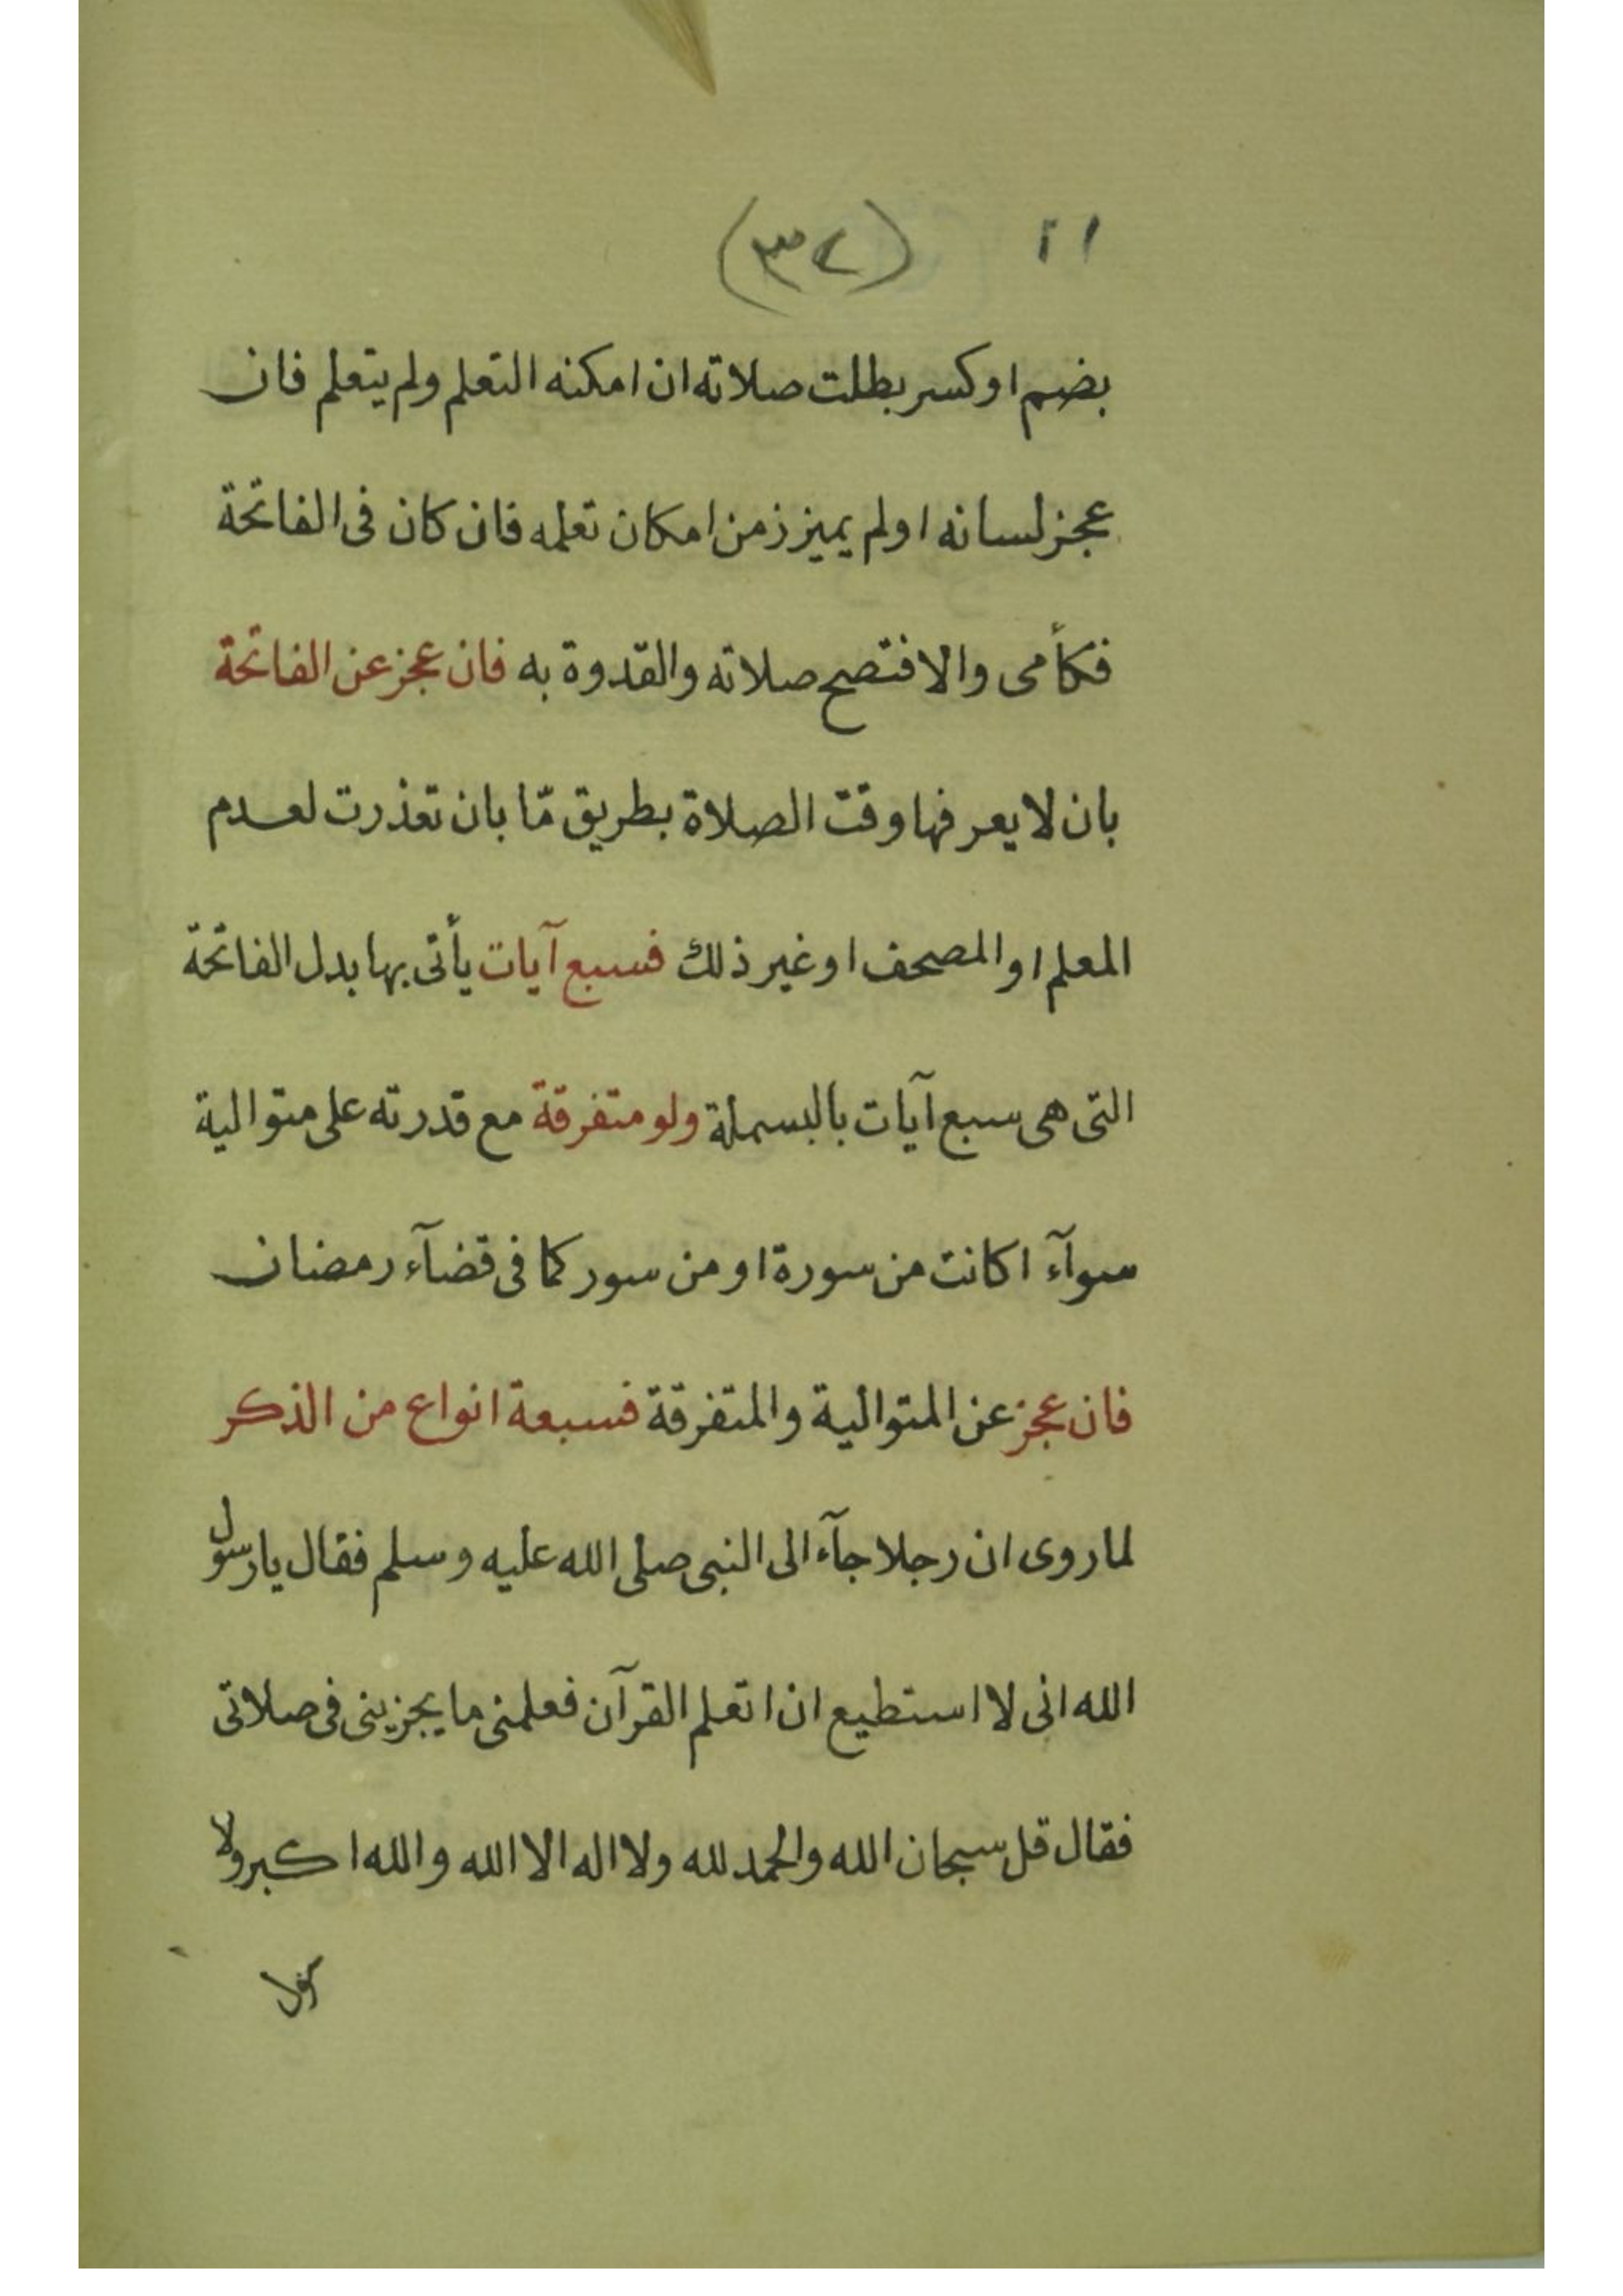 ١١ (٣٧)
بضم او كسر بطلت صلاته ان امكنه التعلم ولم يتعلم فان
عجز لسانه او لم يميز زمن امكان تعلمه فان كان فى الفاتحة
فكأمى والا فتصح صلاته والقدوة به فان عجز عن الفاتحة
بان لا يعرفها وقت الصلاة بطريق مّا بان تعذرت لعدم
المعلم او المصحف او غير ذلك فسبع آيات يأتى بها بدل الفاتحة
التى هى سبع آيات بالبسملة ولو متفرقة مع قدرته على متوالية
سوآء اكانت من سورة او من سور كما فى قضآء رمضان
فان عجز عن المتوالية والمتفرقة فسبعة انواع من الذكر
لما روى ان رجلا جآء الى النبى صلى الله عليه وسلم فقال يا رسول
الله انى لا استطيع ان اتعلم القرآن فعلمنى ما يجزينى فى صلاتى
فقال قل سبحان الله والحمد لله ولا اله الا الله والله اكبر ولا